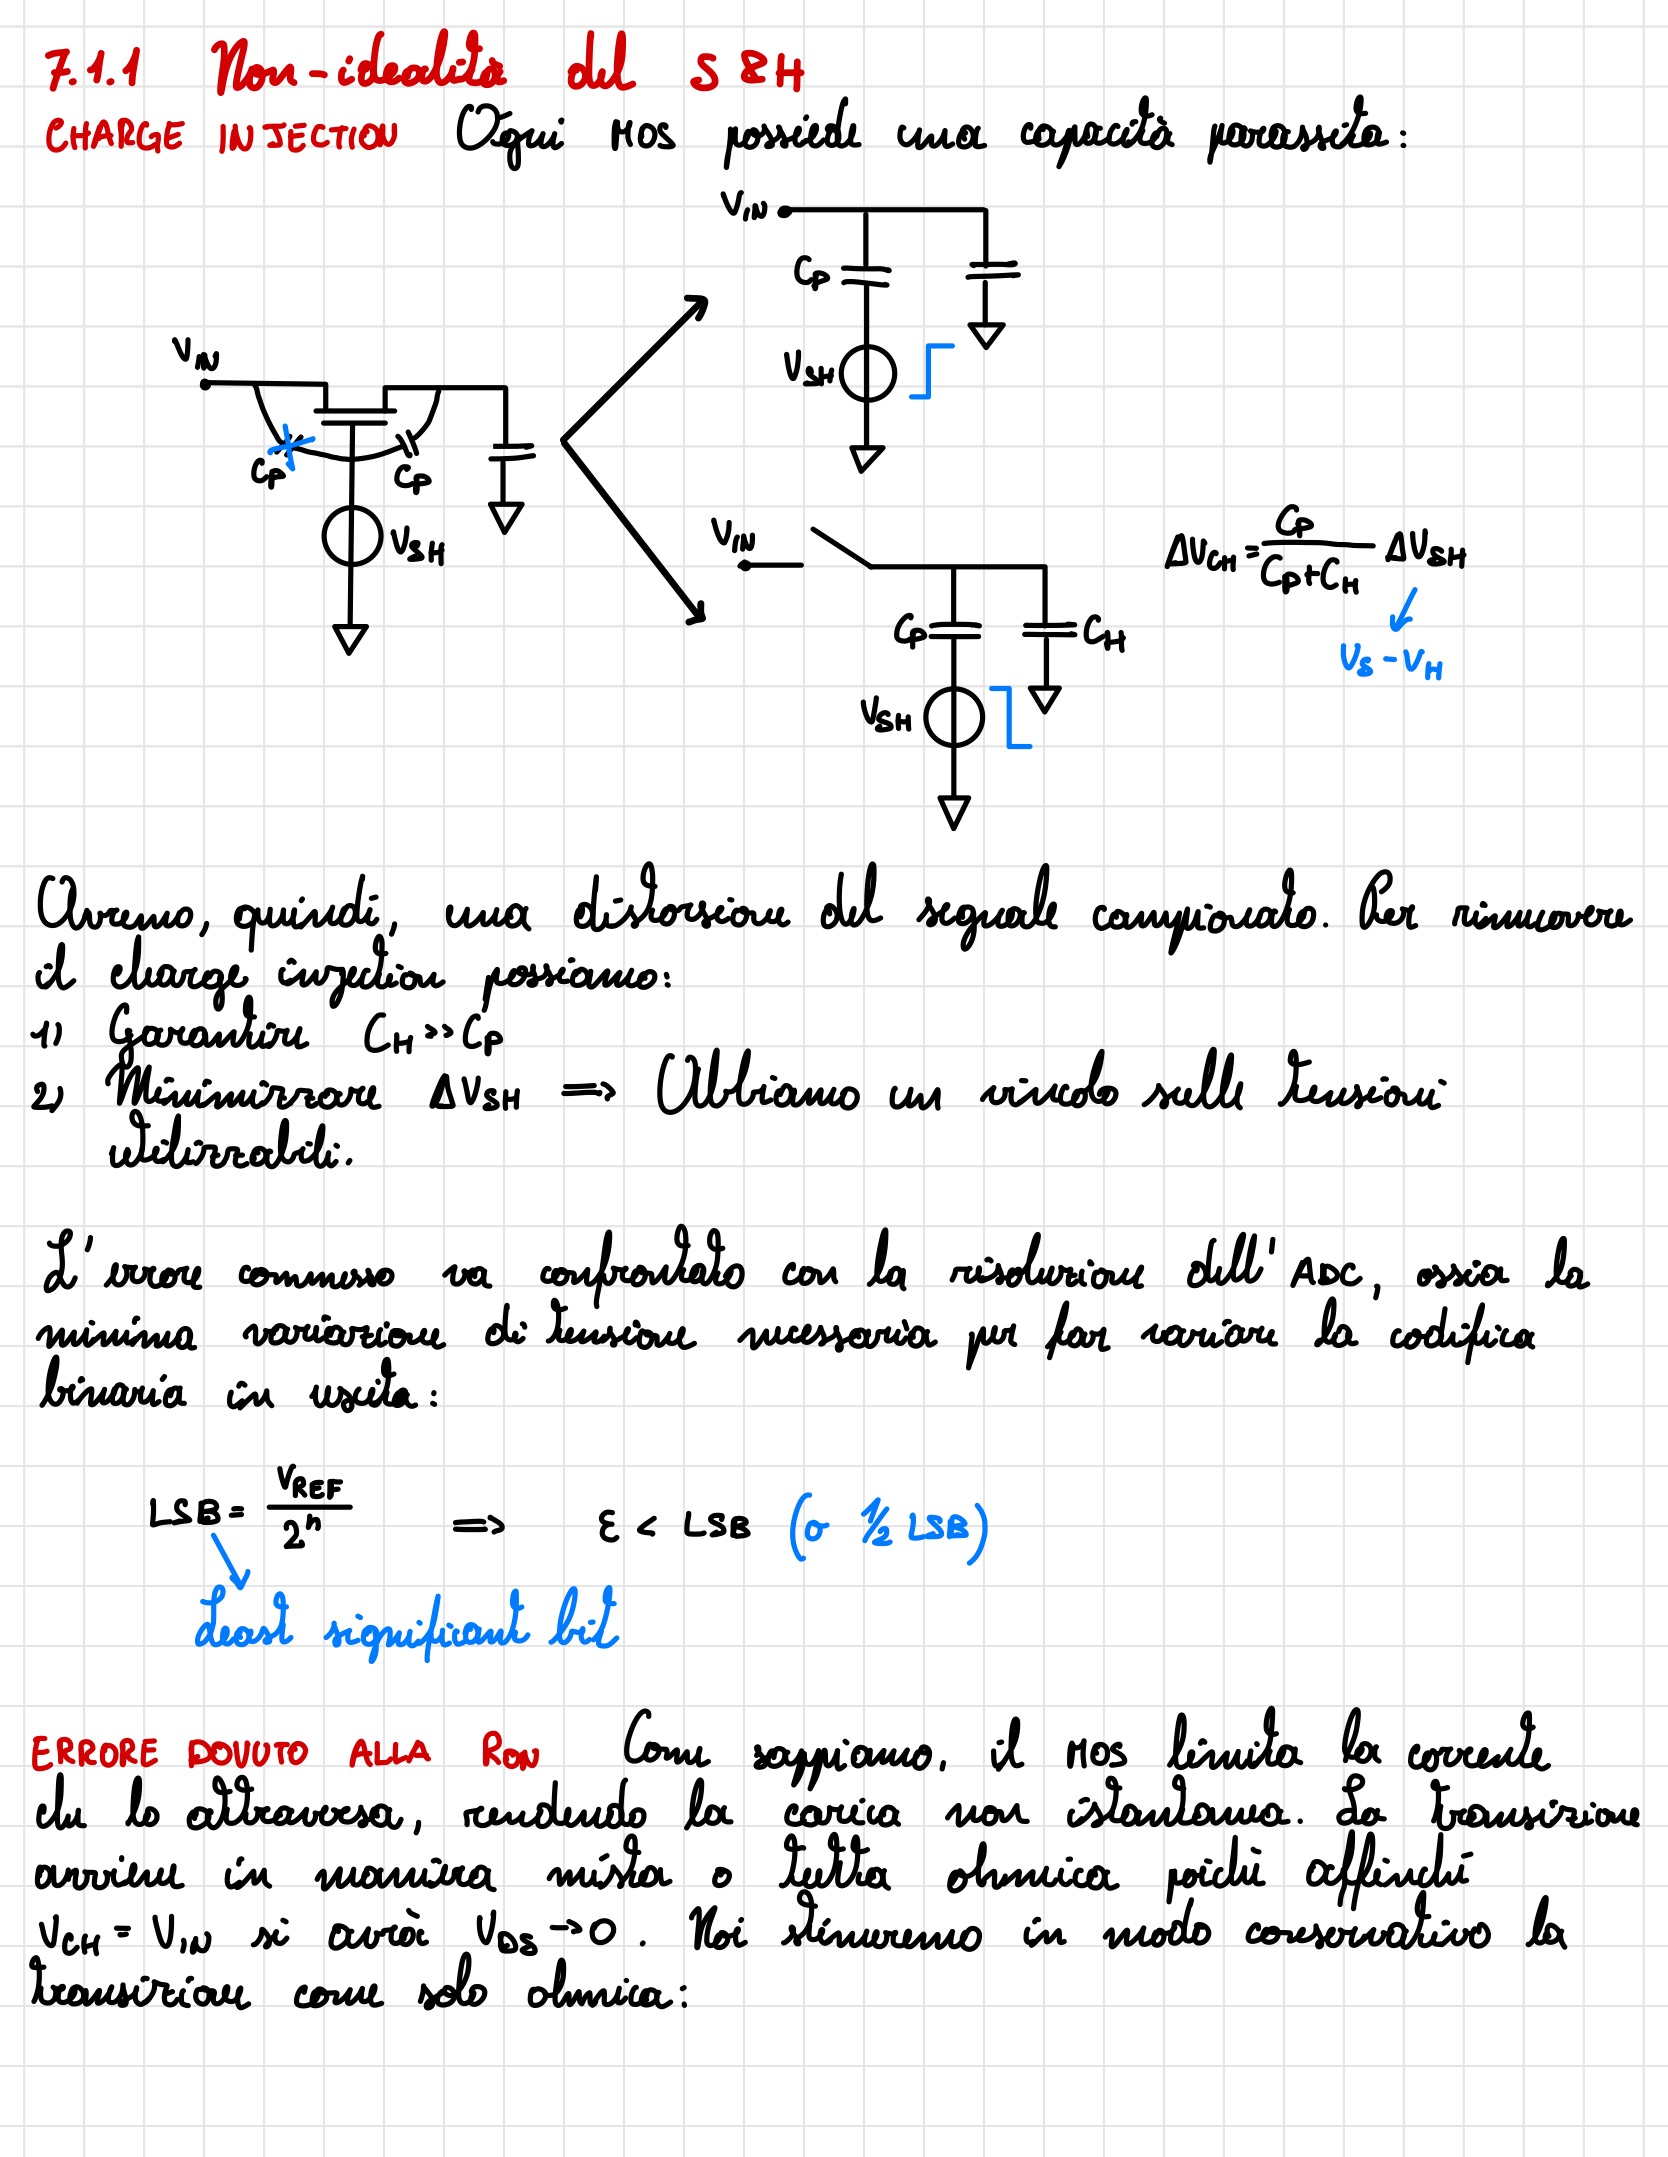 7.1.1 Non-idealità del S&H
CHARGE INJECTION Ogni MOS possiede una capacità parassita:
V_IN
C_P
V_SH
V_IN
C_P C_P
V_SH
V_IN
ΔV_CH = C_P / (C_P + C_H) ΔV_SH
C_P C_H
V_S - V_H
V_SH
Avremo, quindi, una distorsione del segnale campionato. Per rimuovere
il charge injection possiamo:
1) Garantire C_H >> C_P
2) Minimizzare ΔV_SH => Abbiamo un vincolo sulle tensioni
utilizzabili.
L'errore commesso va confrontato con la risoluzione dell'ADC, ossia la
minima variazione di tensione necessaria per far variare la codifica
binaria in uscita:
LSB = V_REF / 2^n => ε < LSB (o 1/2 LSB)
Least significant bit
ERRORE DOVUTO ALLA R_ON Come sappiamo, il MOS limita la corrente
che lo attraversa, rendendo la carica non istantanea. La transizione
avviene in maniera mista o tutta ohmica poiché affinché
V_CH = V_IN si avrà V_DS → 0. Noi stimeremo in modo conservativo la
transizione come solo ohmica: